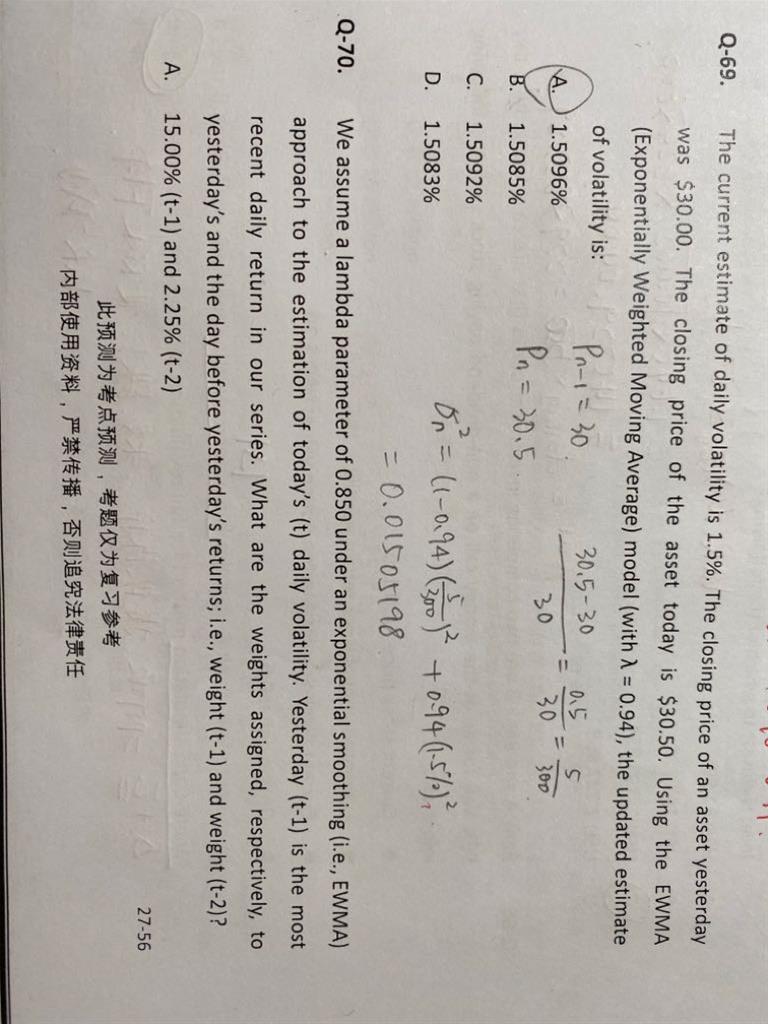 Q-69. The current estimate of daily volatility is 1.5%. The closing price of an asset yesterday
was $30.00. The closing price of the asset today is $30.50. Using the EWMA
(Exponentially Weighted Moving Average) model (with λ = 0.94), the updated estimate
of volatility is:
A. 1.5096%
B. 1.5085%
C. 1.5092%
D. 1.5083%
Pn-1 = 30.
Pn = 30.5.
30.5-30 / 30 = 0.5/30 = 5/300
σn² = (1-0.94)(5/300)² + 0.94(1.5%)².
= 0.01505198
Q-70. We assume a lambda parameter of 0.850 under an exponential smoothing (i.e., EWMA)
approach to the estimation of today's (t) daily volatility. Yesterday (t-1) is the most
recent daily return in our series. What are the weights assigned, respectively, to
yesterday's and the day before yesterday's returns; i.e., weight (t-1) and weight (t-2)?
A. 15.00% (t-1) and 2.25% (t-2)
27-56
此预测为考点预测，考题仅为复习参考
内部使用资料，严禁传播，否则追究法律责任